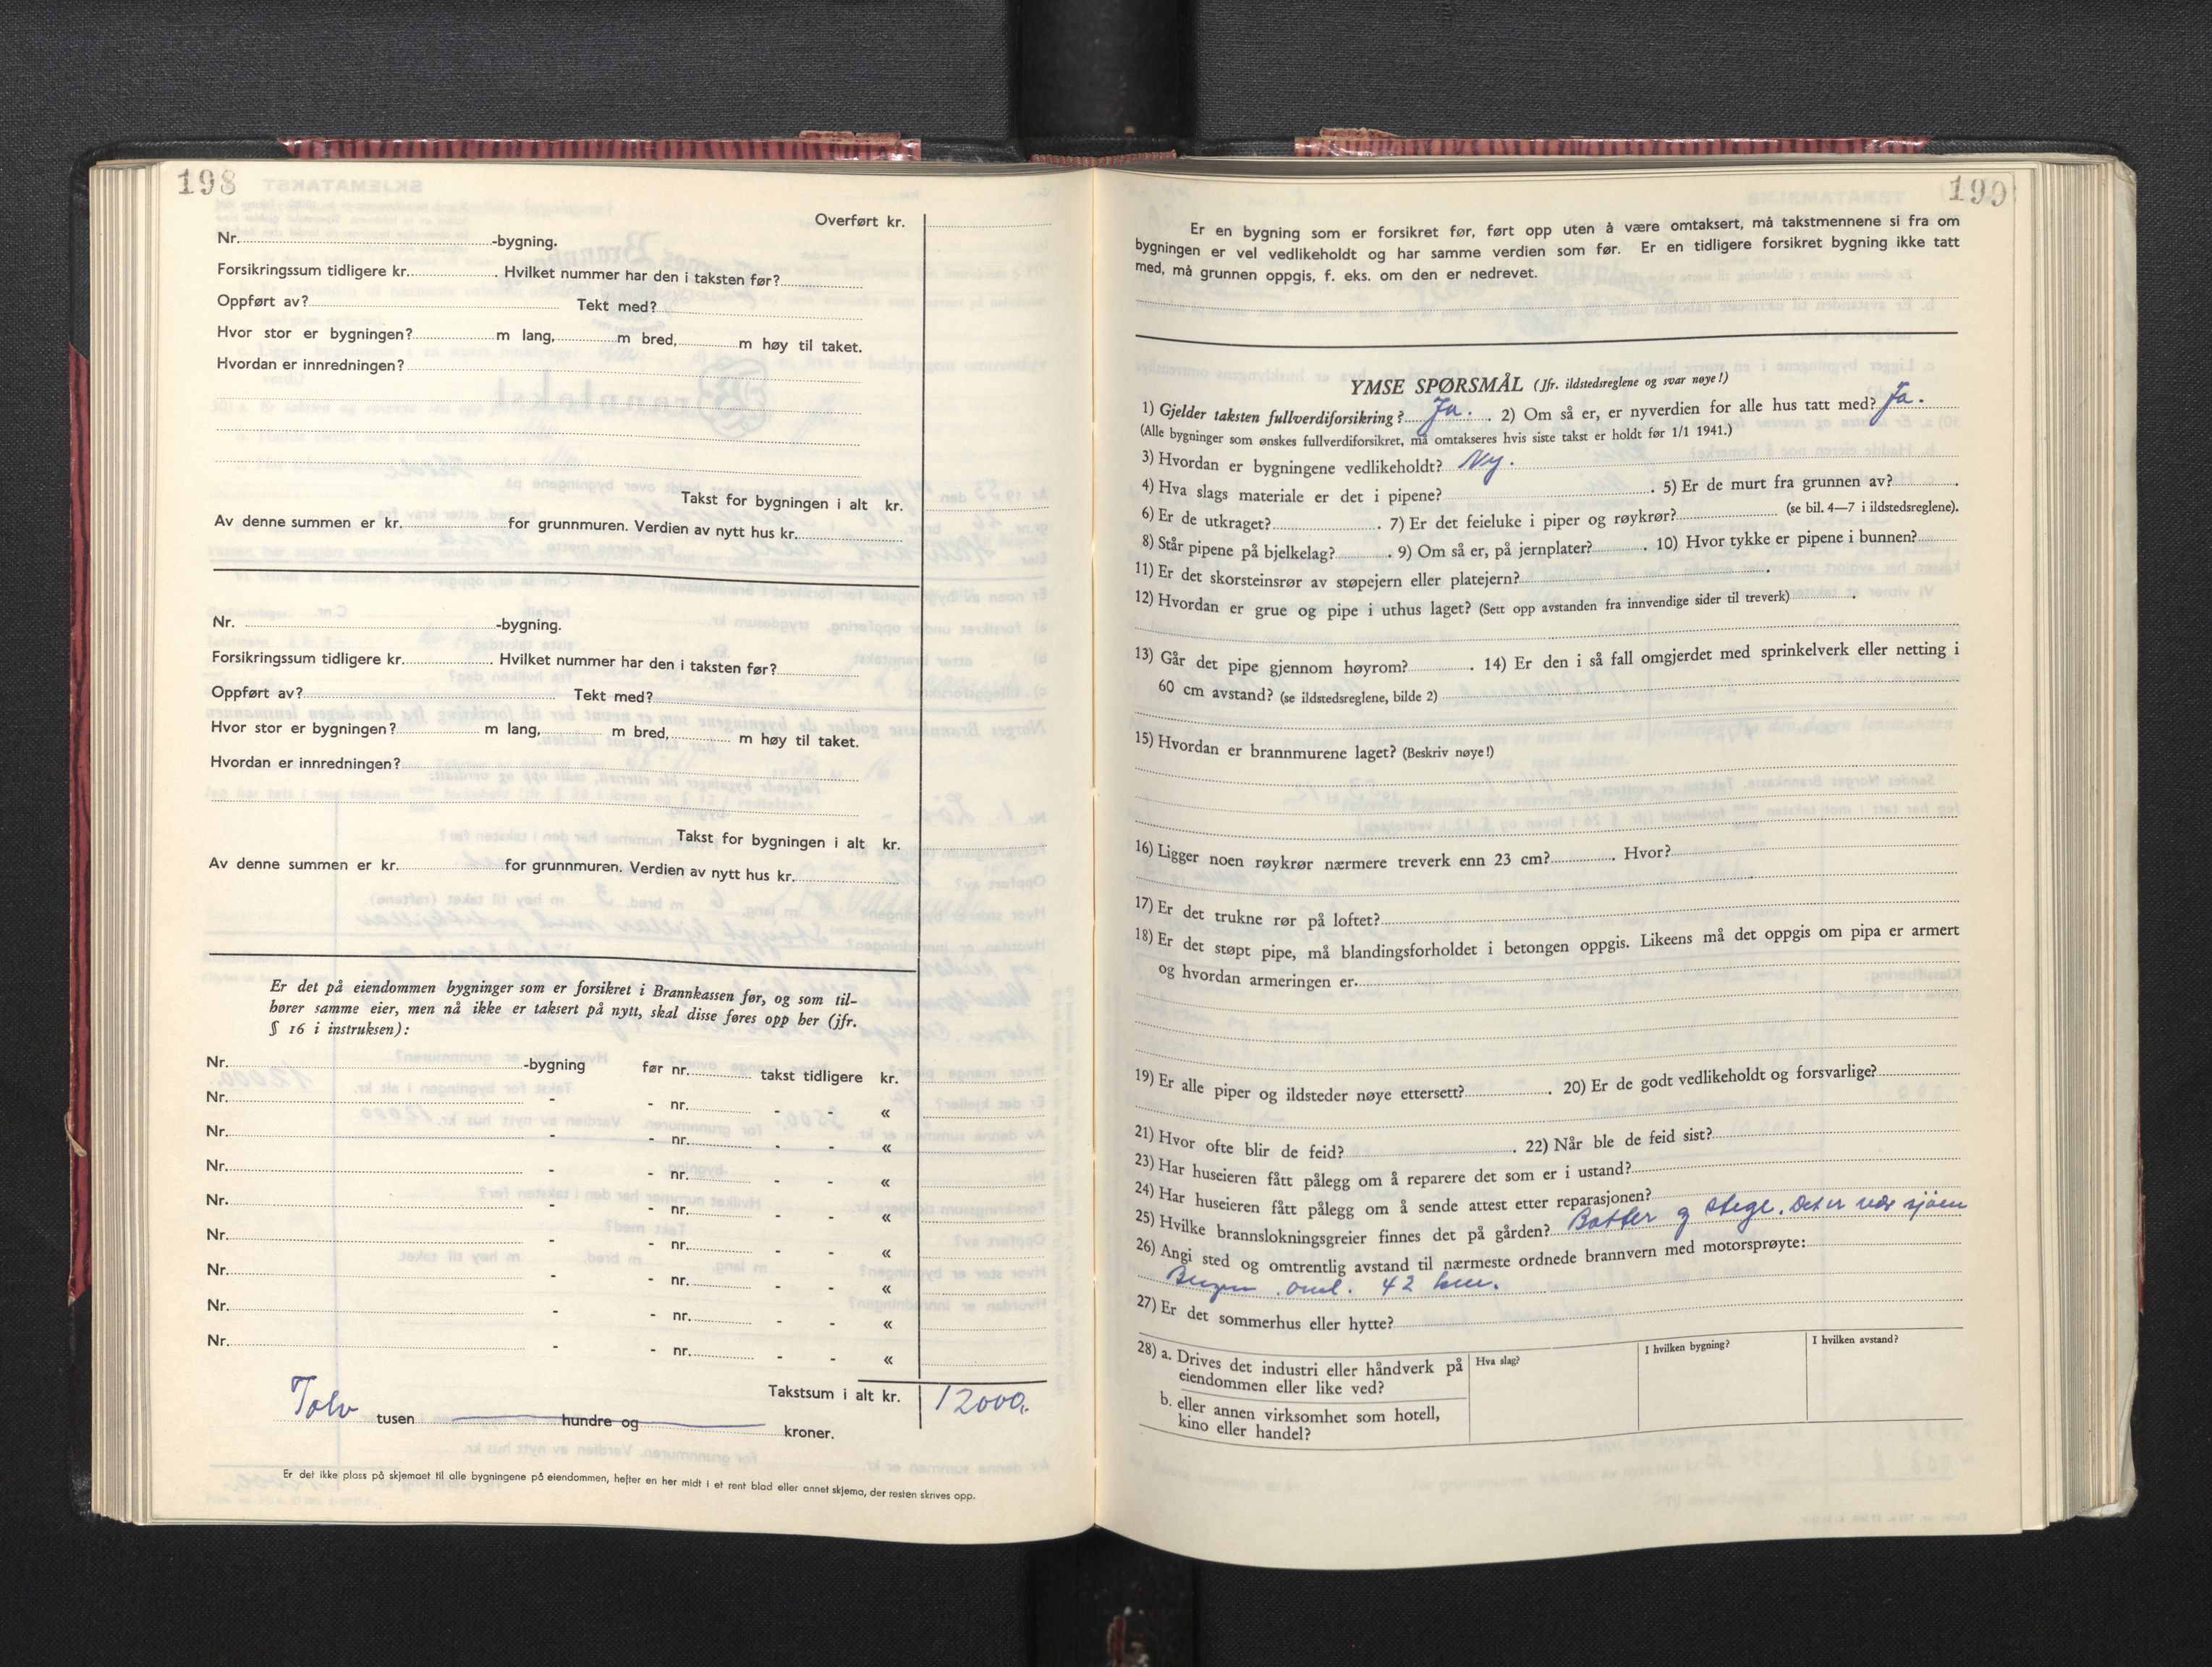 198
Overført kr.
Nr. -bygning.
Forsikringssum tidligere kr. . Hvilket nummer har den i taksten før?
Oppført av? Tekt med?
Hvor stor er bygningen? m lang, m bred, m høy til taket.
Hvordan er innredningen?
Takst for bygningen i alt kr.
Av denne summen er kr. for grunnmuren. Verdien av nytt hus kr.
Nr. -bygning.
Forsikringssum tidligere kr. . Hvilket nummer har den i taksten før?
Oppført av? Tekt med?
Hvor stor er bygningen? m lang, m bred, m høy til taket.
Hvordan er innredningen?
Takst for bygningen i alt kr.
Av denne summen er kr. for grunnmuren. Verdien av nytt hus kr.
Er det på eiendommen bygninger som er forsikret i Brannkassen før, og som til-
hører samme eier, men nå ikke er taksert på nytt, skal disse føres opp her (jfr.
§ 16 i instruksen):
Nr. -bygning før nr. takst tidligere kr.
Nr. - - nr. - - «
Nr. - - nr. - - «
Nr. - - nr. - - «
Nr. - - nr. - - «
Nr. - - nr. - - «
Nr. - - nr. - - «
Nr. - - nr. - - «
Nr. - - nr. - - «
Takstsum i alt kr. 12000,
Tolv tusen hundre og kroner.
Er det ikke plass på skjemaet til alle bygningene på eiendommen, hefter en her midt i et rent blad eller annet skjema, der resten skrives opp.
199
Er en bygning som er forsikret før, ført opp uten å være omtaksert, må takstmennene si fra om
bygningen er vel vedlikeholdt og har samme verdien som før. Er en tidligere forsikret bygning ikke tatt
med, må grunnen oppgis, f. eks. om den er nedrevet.
YMSE SPØRSMÅL (Jfr. ildstedsreglene og svar nøye!)
1) Gjelder taksten fullverdiforsikring? Ja. . 2) Om så er, er nyverdien for alle hus tatt med? Ja.
(Alle bygninger som ønskes fullverdiforsikret, må omtakseres hvis siste takst er holdt før 1/1 1941.)
3) Hvordan er bygningene vedlikeholdt? Ny.
4) Hva slags materiale er det i pipene? . 5) Er de murt fra grunnen av? .
6) Er de utkraget? . 7) Er det feieluke i piper og røykrør? (se bil. 4—7 i ildstedsreglene).
8) Står pipene på bjelkelag? . 9) Om så er, på jernplater? . 10) Hvor tykke er pipene i bunnen?
11) Er det skorsteinsrør av støpejern eller platejern? .
12) Hvordan er grue og pipe i uthus laget? (Sett opp avstanden fra innvendige sider til treverk) .
13) Går det pipe gjennom høyrom? . 14) Er den i så fall omgjerdet med sprinkelverk eller netting i
60 cm avstand? (se ildstedsreglene, bilde 2)
15) Hvordan er brannmurene laget? (Beskriv nøye!)
16) Ligger noen røykrør nærmere treverk enn 23 cm? . Hvor?
17) Er det trukne rør på loftet?
18) Er det støpt pipe, må blandingsforholdet i betongen oppgis. Likeens må det oppgis om pipa er armert
og hvordan armeringen er.
19) Er alle piper og ildsteder nøye ettersett? . 20) Er de godt vedlikeholdt og forsvarlige?
21) Hvor ofte blir de feid? . 22) Når ble de feid sist?
23) Har huseieren fått pålegg om å reparere det som er i ustand?
24) Har huseieren fått pålegg om å sende attest etter reparasjonen?
25) Hvilke brannslokningsgreier finnes det på gården? Bøtter og stege. Det er ved sjøen
26) Angi sted og omtrentlig avstand til nærmeste ordnede brannvern med motorsprøyte:
Bergen oml. 42 km.
27) Er det sommerhus eller hytte?
28) a. Drives det industri eller håndverk på
eiendommen eller like ved?
b. eller annen virksomhet som hotell,
kino eller handel?
Hva slag?
I hvilken bygning?
I hvilken avstand?